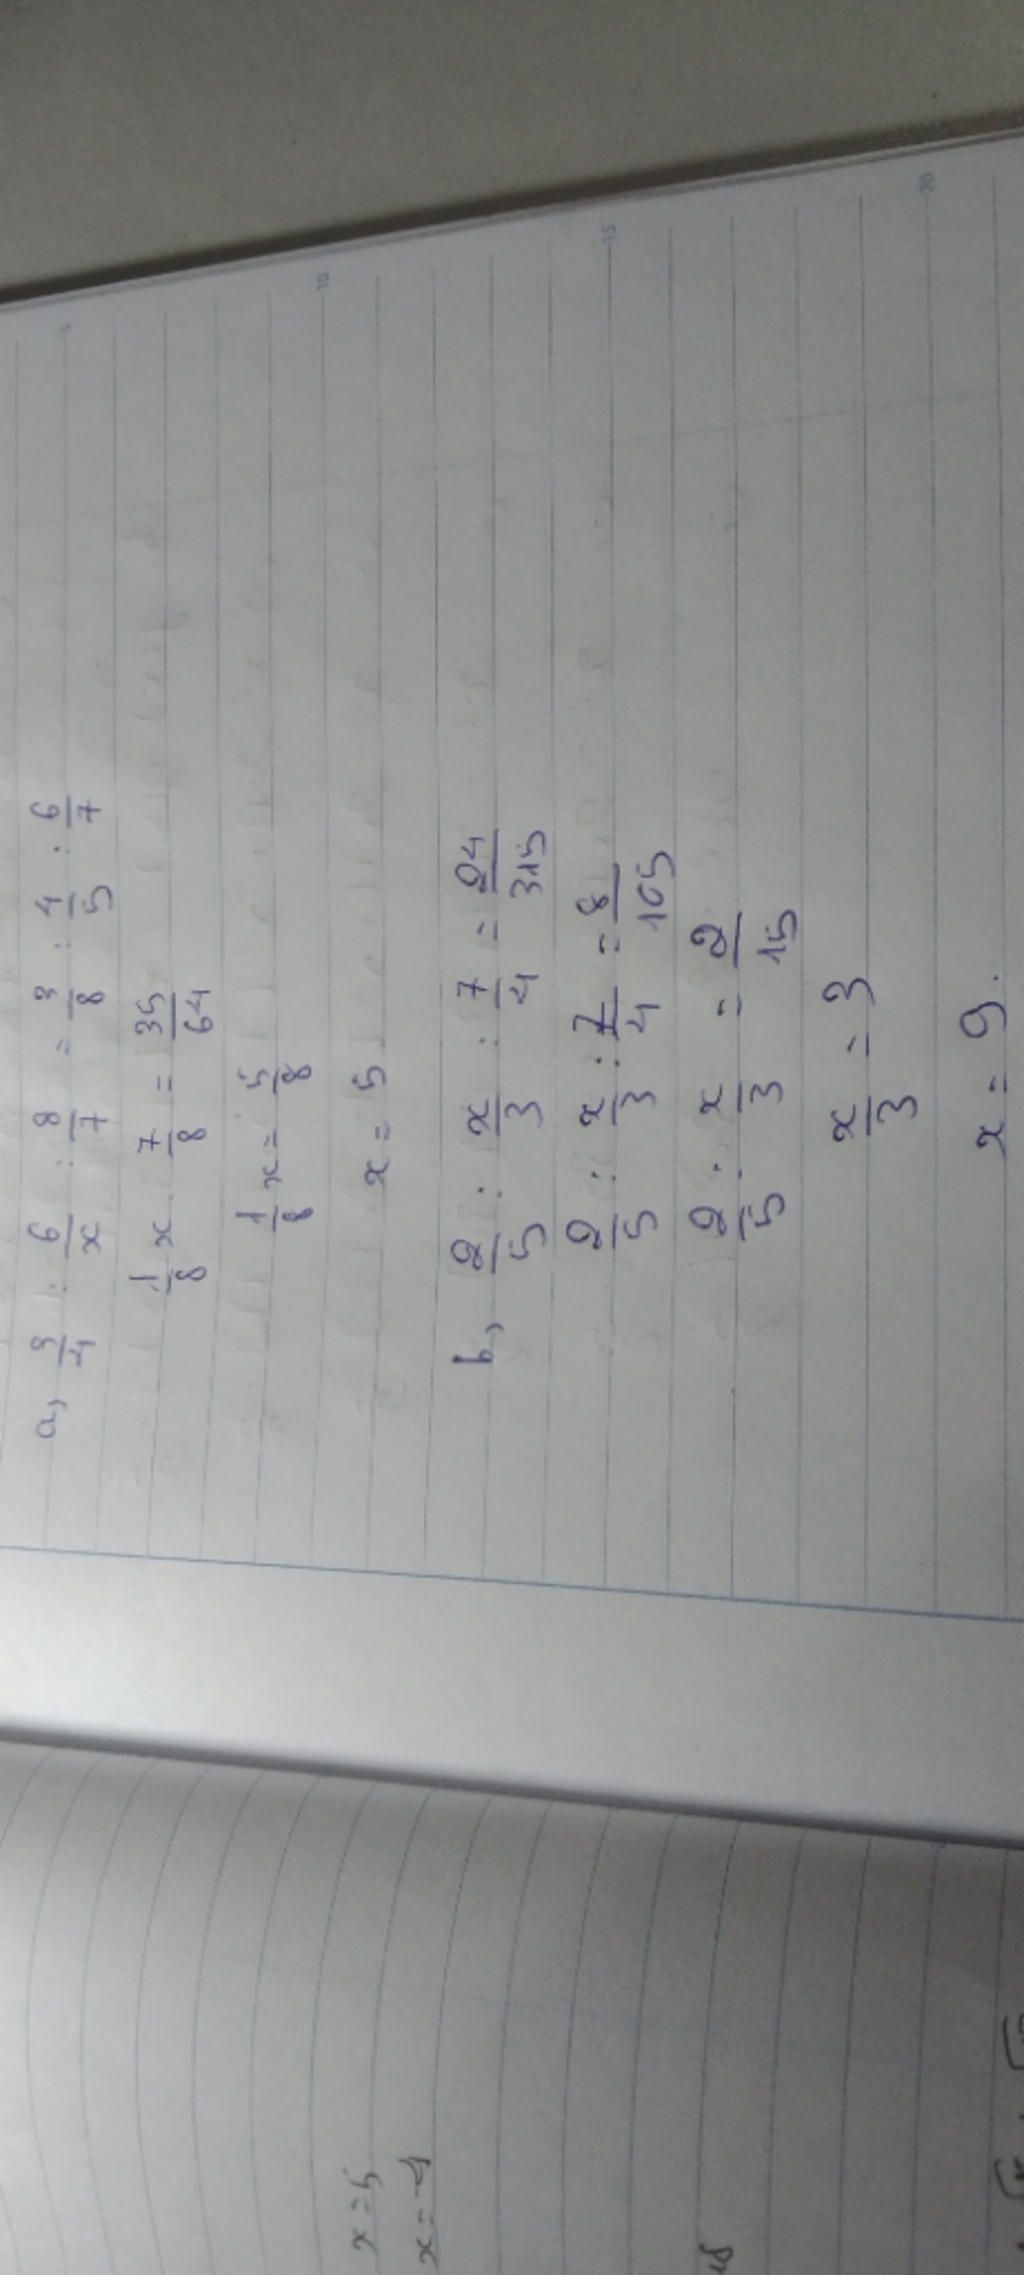 a, 3/4 : 6/x : 8/7 = 3/8 : 4/5 . 6/7
1/8 x . 7/8 = 35/64
1/8 x = 5/8
x = 5
b, 2/5 : x/3 : 7/4 = 24/315
2/5 : x/3 : 7/4 = 8/105
2/5 : x/3 = 2/15
x/3 = 3
x = 9.
x = 5
x = -4
10
15
20